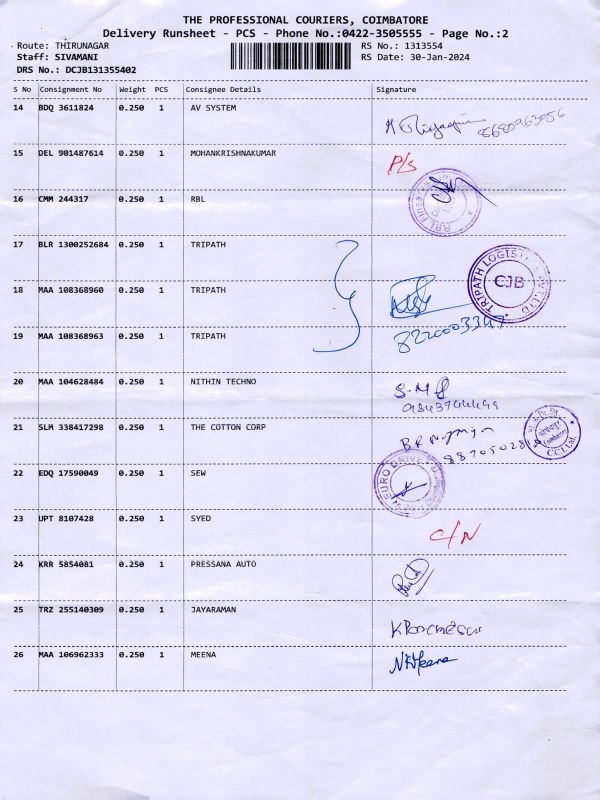 THE PROFESSIONAL COURIERS, COIMBATORE
Delivery Runsheet - PCS - Phone No.:0422-3505555 - Page No.:2
Route: THIRUNAGAR RS No.: 1313554
Staff: SIVAMANI RS Date: 30-Jan-2024
DRS No.: DCJB131355402
S No Consignment No Weight PCS Consignee Details Signature
14 BDQ 3611824 0.250 1 AV SYSTEM
15 DEL 901487614 0.250 1 MOHANKRISHNAKUMAR P/S
16 CMM 244317 0.250 1 RBL
17 BLR 1300252684 0.250 1 TRIPATH
TRIPATH LOGISTICS PVT LTD
CJB
18 MAA 108368960 0.250 1 TRIPATH
19 MAA 108368963 0.250 1 TRIPATH
20 MAA 104628484 0.250 1 NITHIN TECHNO
21 SLM 338417298 0.250 1 THE COTTON CORP
22 EDQ 17590049 0.250 1 SEW
EURO DRIVE
23 UPT 8107428 0.250 1 SYED C/N
24 KRR 5854081 0.250 1 PRESSANA AUTO
25 TRZ 255140309 0.250 1 JAYARAMAN
26 MAA 106962333 0.250 1 MEENA N.Meena